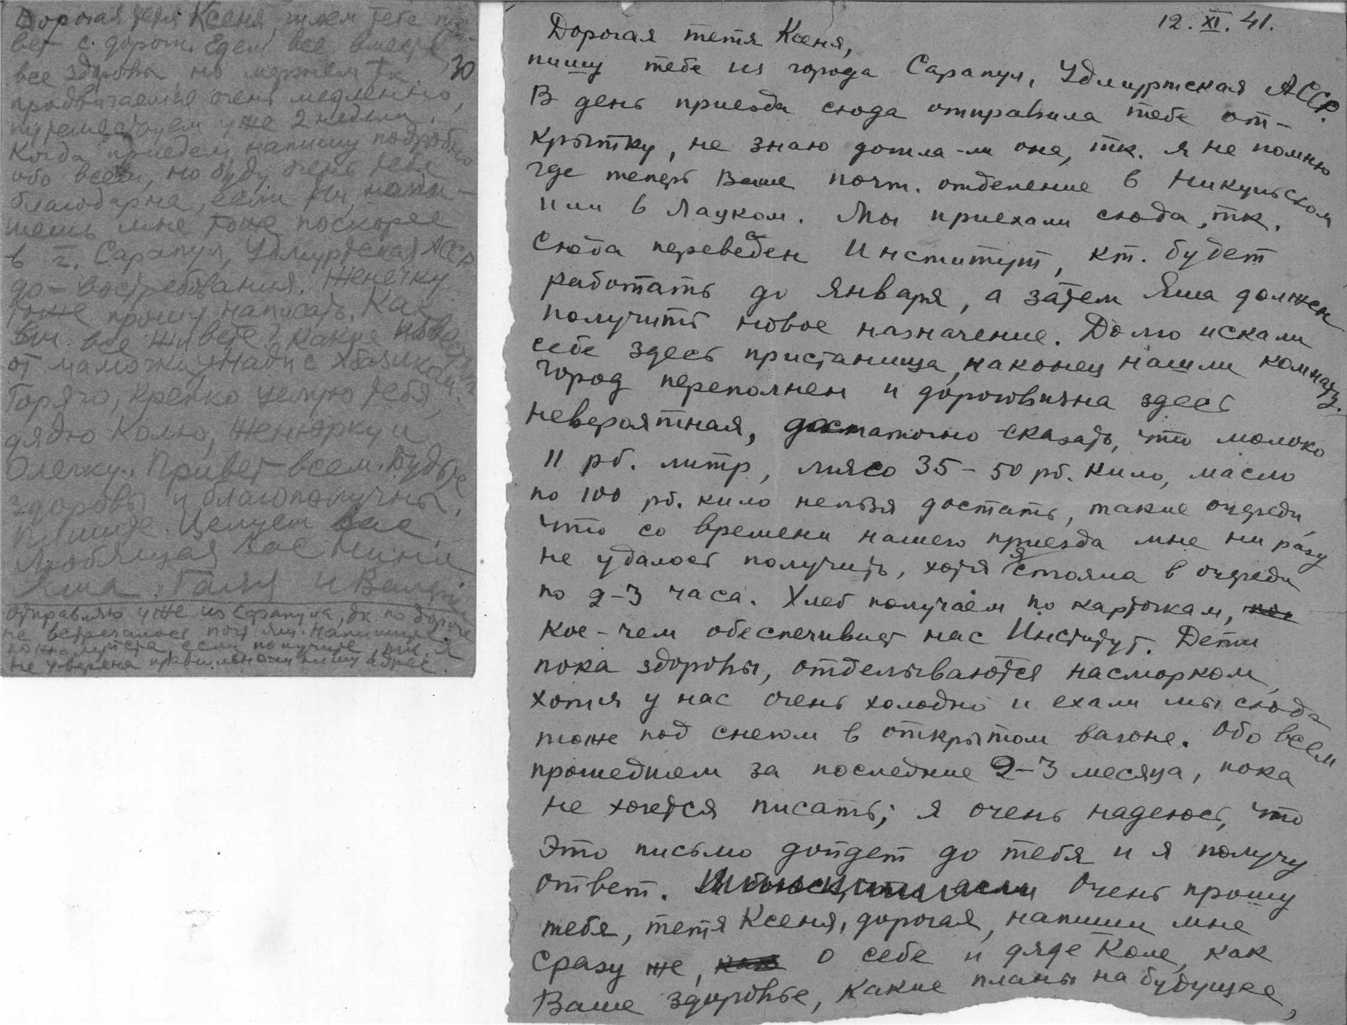 Дорогая тетя Ксеня, шлем тебе при-
вет с дороги. Едем все вместе,
все здоровы но мерзнем т.к. 30
продвигаемся очень медленно,
путешествуем уже 2 недели.
Когда приедем, напишу подробно
обо всем, но буду очень тебе
благодарна, если ты, напи-
шешь мне тоже поскорее
в г. Сарапул, Удмуртская АССР
до-востребования. Женечку
тоже прошу написать. Как
вы все живете? Какие
от мамочки, Нади с
Горячо, крепко целую тебя,
дядю Колю, Женюрку и
Олечку. Привет всем. Будьте
здоровы и благополучны.
Пишите. Целуем Вас,
Любящая Вас Нина
Яша, Галя и
Отправляю уже из Сарапула, т.к. по дороге
не встречалось почт. ящ. Напишите
пожалуйста, если получите, т.к. я
не уверена правильно ли пишу адрес.
12. XI. 41.
Дорогая тетя Ксеня,
пишу тебе из города Сарапул, Удмуртская АССР.
В день приезда сюда отправила тебе от-
крытку, не знаю дошла-ли она, т.к. я не помню
где теперь Ваше почт. отделение в Никульском
или в Лауком. Мы приехали сюда, т.к.
сюда переведен Институт, кт. будет
работать до января, а затем Яша должен
получить новое назначение. Долго искали
себе здесь пристанища, наконец нашли комнату.
Город переполнен и дороговизна здесь
невероятная, достаточно сказать, что молоко
11 рб. литр, мясо 35-50 рб. кило, масло
по 100 рб. кило нельзя достать, такие очереди,
что со времени нашего приезда мне ни разу
не удалось получить, хотя я стояла в очереди
по 2-3 часа. Хлеб получаем по карточкам,
кое-чем обеспечивает нас Институт. Дети
пока здоровы, отделываются насморком,
хотя у нас очень холодно и ехали мы сюда
тоже под снегом в открытом вагоне. Обо всем
прошедшем за последние 2-3 месяца, пока
не хочется писать; я очень надеюсь, что
это письмо дойдет до тебя и я получу
ответ. Очень прошу
тебя, тетя Ксеня, дорогая, напиши мне
сразу же, о себе и дяде Коле, как
Ваше здоровье, какие планы на будущее,